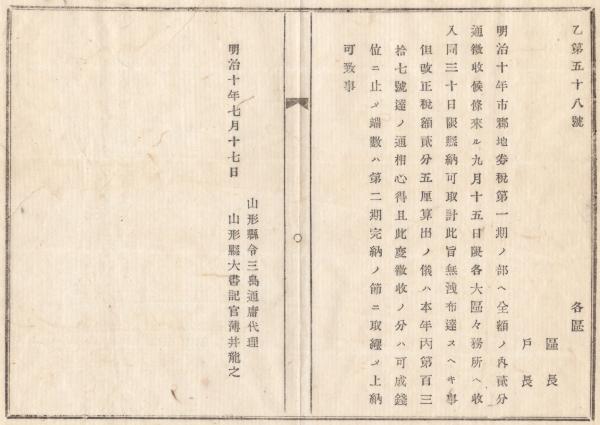 乙第五十八號
各區
區長
戶長
明治十年市郡地券税第一期ノ部ヘ全額ノ內貳分
通徴收候條來ル九月十五日限各大區々務所ヘ收
入同三十日限縣納可取計此旨無洩布達スヘキ事
但改正税額貳分五厘算出ノ儀ハ本年丙第百三
拾七號達ノ通相心得且此度徴收ノ分ハ可成錢
位ニ止メ端數ハ第二期完納ノ節ニ取纒メ上納
可致事
明治十年七月十七日
山形縣令三島通庸代理
山形縣大書記官薄井龍之